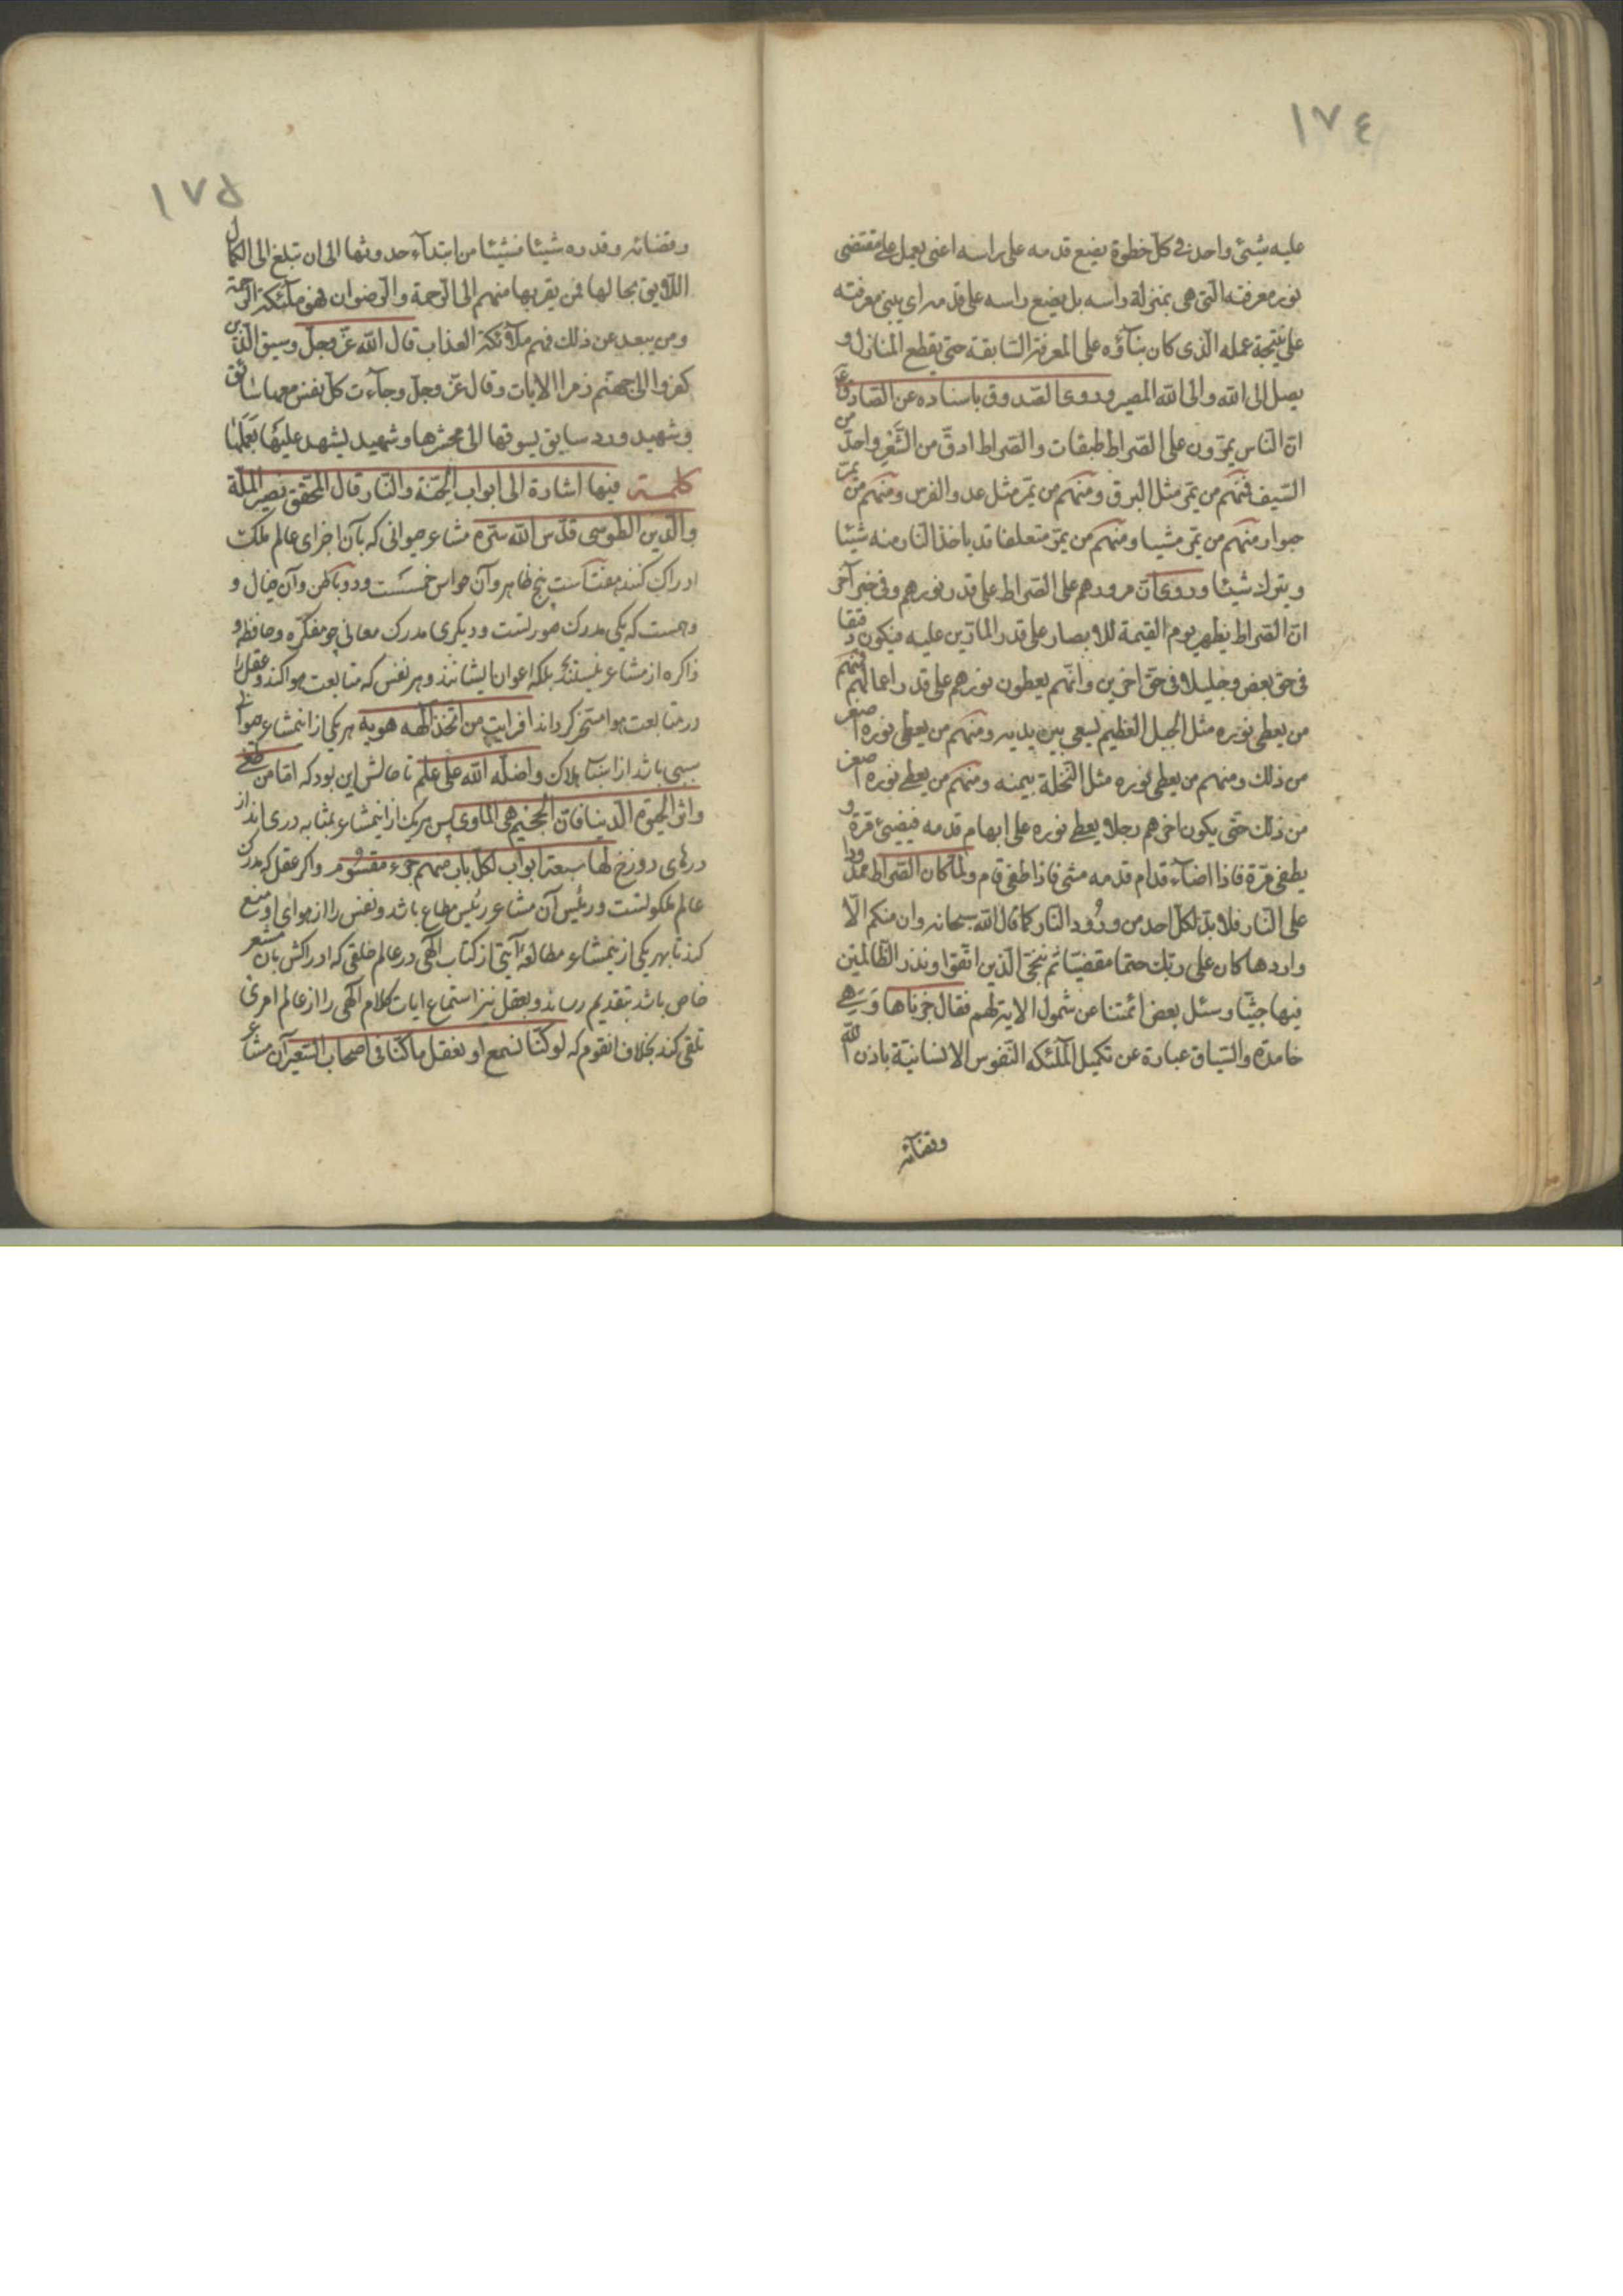 ١٧٤
عليه شيئ واحد في كل خطوة يضع قدمه على راسه اعنى يعمل على مقتضى
نور معرفته التى هى بمنزلة راسه بل يضع راسه على قدمه اى يبنى معرفته
على نتيجة عمله الذى كان بناؤه على المعرفة السابقة حتى يقطع المنازل و
يصل الى الله والى الله المصير وروى الصدوق باسناده عن الصادق ع
ان الناس يمرون على الصراط طبقات والصراط ادق من الشعر واحد من
السيف فمنهم من يمر مثل البرق ومنهم من يمر مثل عدو الفرس ومنهم من يمر
حبوا ومنهم من يمر مشيا ومنهم من يمر متعلقا قد ياخذ النار منه شيئا
ويترك شيئا وروى ان مرورهم على الصراط على قدر نورهم وفى خبر آخر
ان الصراط يظهر يوم القيمة للابصار على قدر المارين عليه فيكون دقيقا
فى حق بعض وجليلا فى حق اخرين وانهم يعطون نورهم على قدر اعمالهم فمنهم
من يعطى نوره مثل الجبل العظيم يسعى بين يديه ومنهم من يعطى نوره اصغر
من ذلك ومنهم من يعطى نوره مثل النخلة بيمينه ومنهم من يعطى نوره اصغر
من ذلك حتى يكون اخرهم رجلا يعطى نوره على ابهام قدمه فيضيئ مرة و
يطفى مرة فاذا اضاء قدام قدمه مشى فاذا طفى قام ولما كان الصراط ممدودا
على النار فلا بد لكل احد من ورود النار كما قال الله سبحانه وان منكم الا
واردها كان على ربك حتما مقضيا ثم ننجى الذين اتقوا ونذر الظالمين
فيها جثيا وسئل بعض ائمتنا عن شمول الاية لهم فقال جزناها وهى
خامدة والسياق عبارة عن تكميل الملئكه النفوس الانسانية باذن الله
وقضائه
١٧٥
وقضائه وقدره شيئا فشيئا من ابتداء حدوثها الى ان تبلغ الى الكمال
اللايق بحالها فمن يقربها منهم الى الرحمة والرضوان فهو ملئكة الرحمة
ومن يبعد عن ذلك فهم ملائكة العذاب قال الله عز وجل وسيق الذين
كفروا الى جهنم زمرا الايات وقال عز وجل وجاءت كل نفس معها سائق
وشهيد ورد سايق يسوقها الى محشرها وشهيد يشهد عليها بعملها
كلمة فيها اشارة الى ابواب الجنة والنار قال المحقق نصير الملة
والدين الطوسى قدس الله سره مشاعر حيوانى كه بآن اجزاى عالم ملك
ادراك كنند هفتاست پنج ظاهر وآن حواس خمسست ودو باطن وآن خيال و
وهمست كه يكى مدرك صورتست وديكرى مدرك معانى چو مفكره وحافظه و
ذاكره از مشاعر نيستند بلكه اعوان ايشانند وهر نفس كه متابعت هوا كند وعقل را
در متابعت هوا مسخر كرداند افرايت من اتخذ الهه هويه هر يكى از اين مشاعر
سببى باشد از اسباب هلاك واضله الله على علم تا حالش اين بود كه اما من طغى
واثر الحيوة الدنيا فان الجحيم هى الماوى پس هر يك از اينمشاعر بمثابه درى اند از
درهاى دوزخ لها سبعة ابواب لكل باب منهم جزء مقسوم واكر عقل كه مدرك
عالم ملكوتست ورئيس آن مشاعر رئيس مطاع باشد ونفس را از هواى او منع
كند تا بهر يكى از اينمشاعر مطالعه آيتى از كتاب الهى در عالم خلقى كه ادراكش بان مشعر
خاص باشد بتقديم رساند وبعقل نيز استماع ايات كلام الهى را از عالم امرى
تلقى كند بخلاف انقوم كه لو كنا نسمع او نعقل ما كنا فى اصحاب السعير آن مشاعر